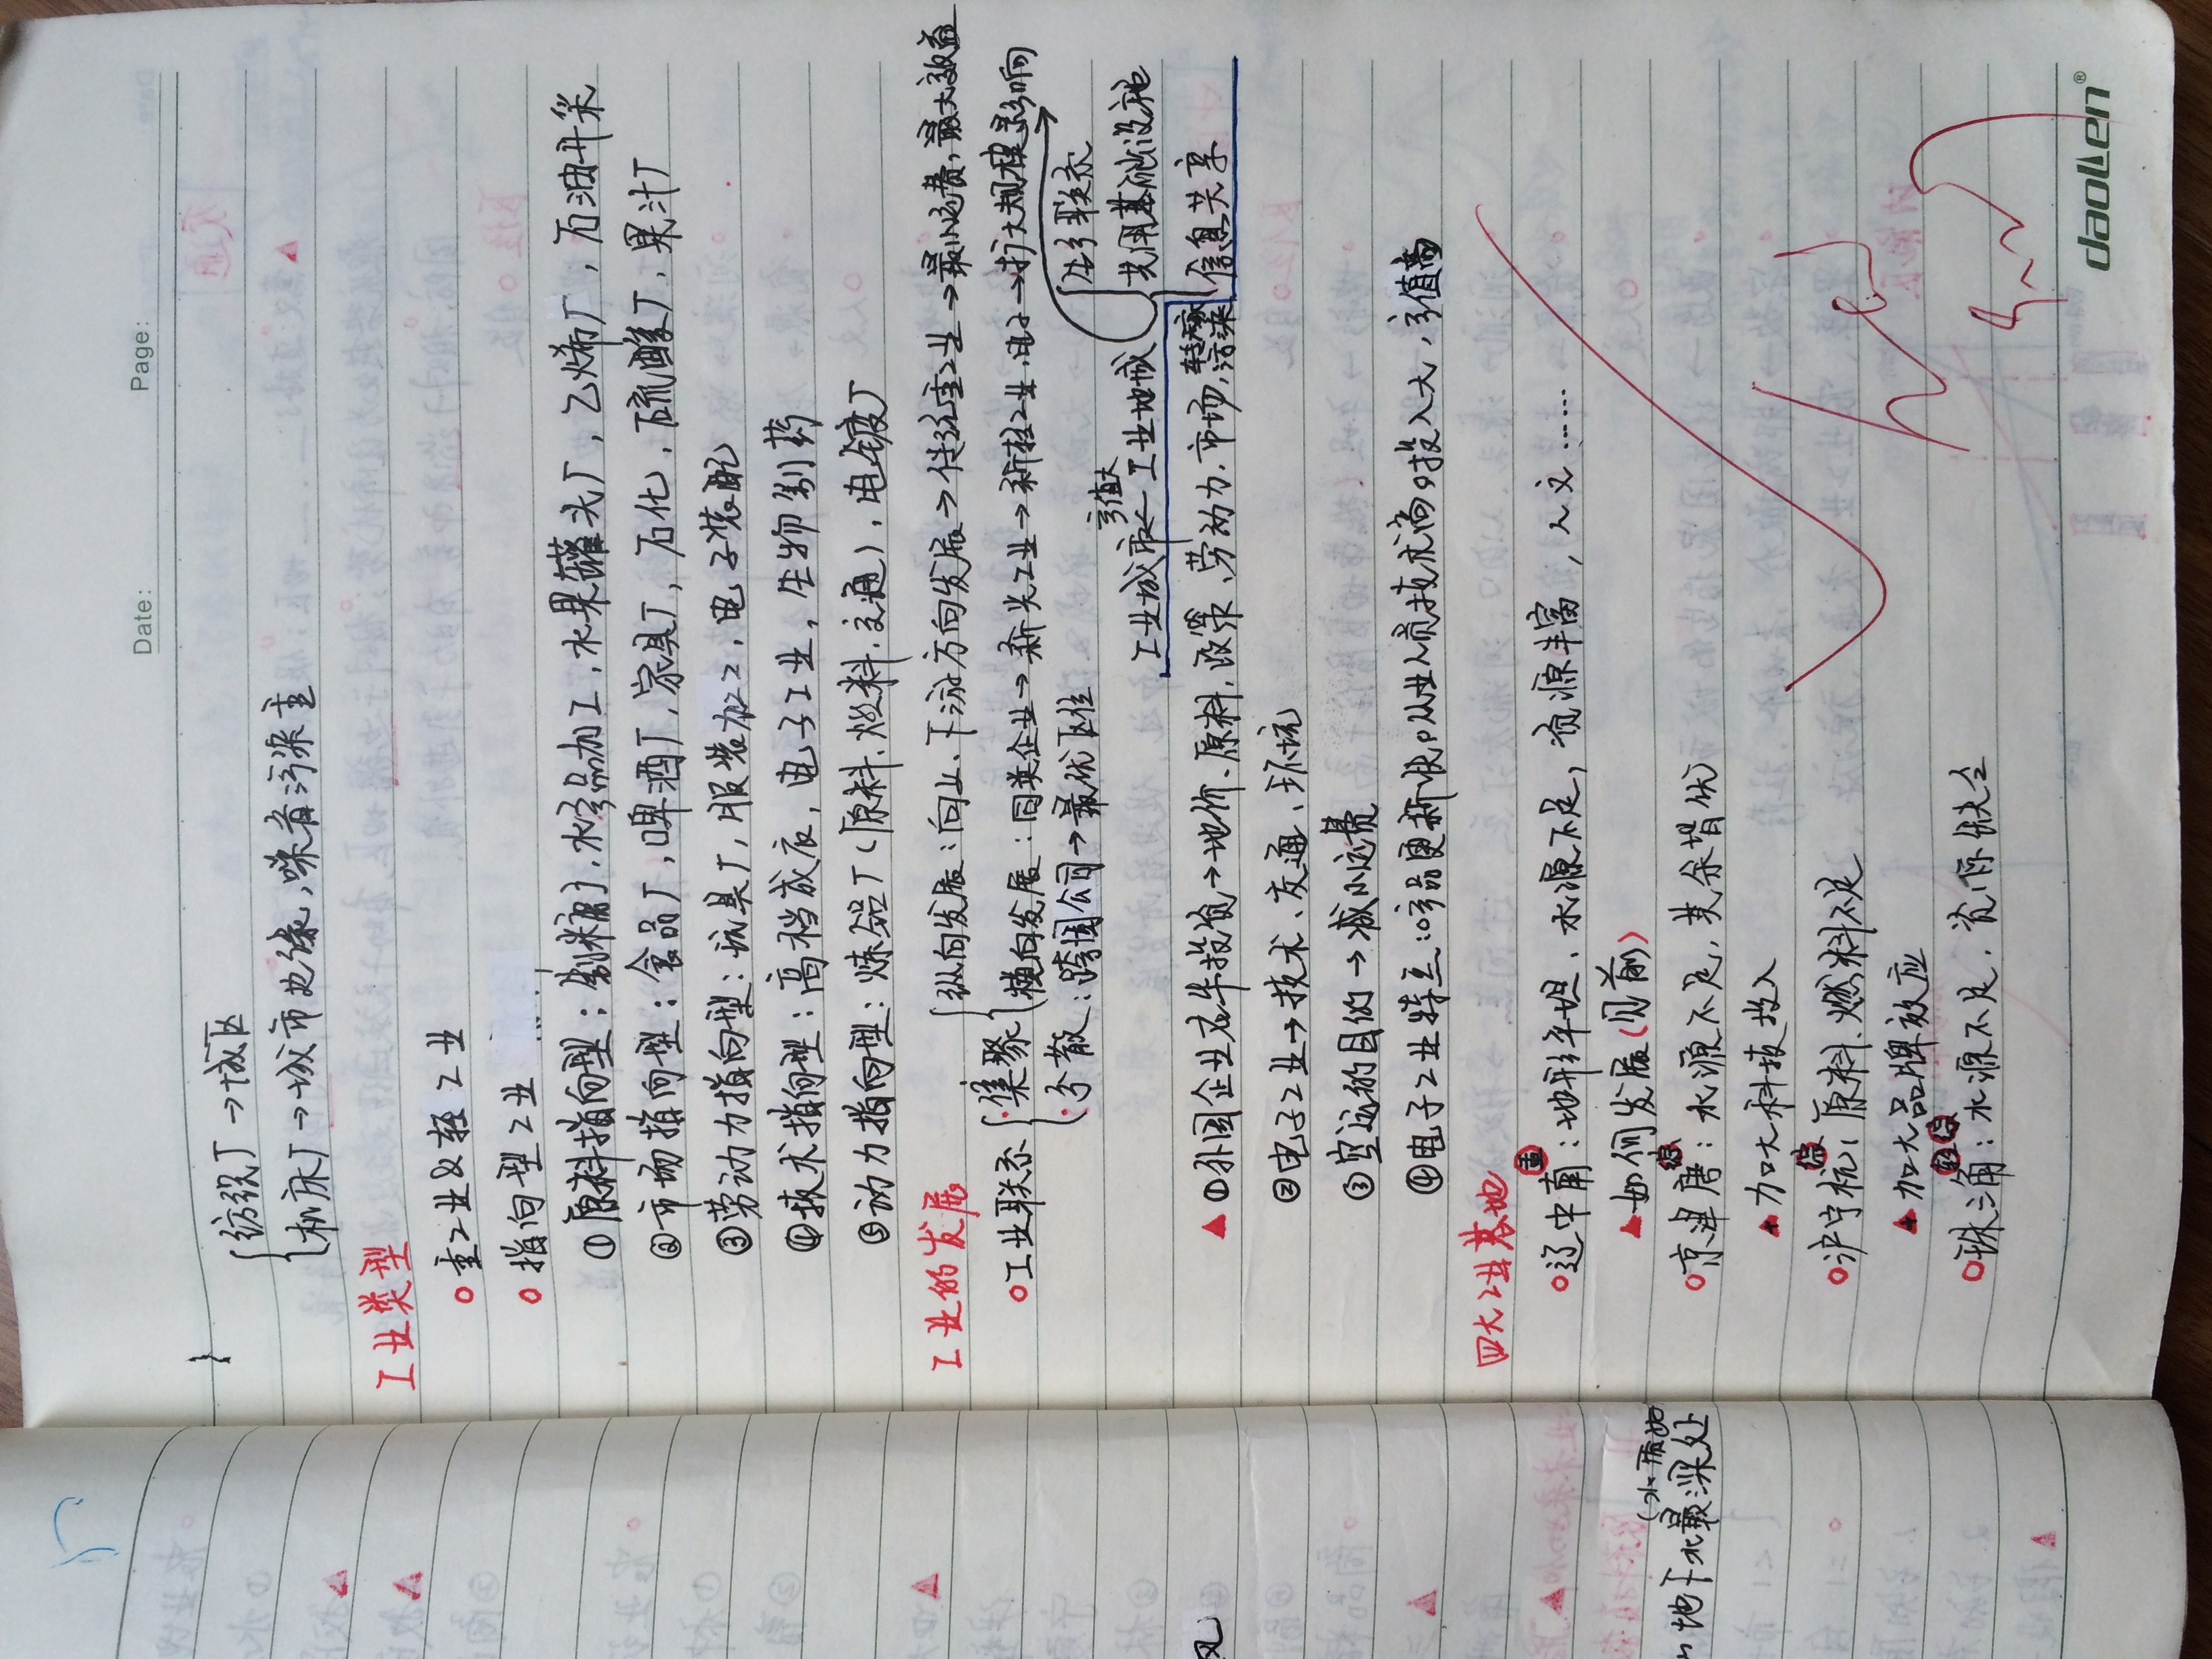 Date: Page:
纺织厂→城区
机床厂→城市边缘,噪音污染重
工业类型
重工业&轻工业
指向型工业
①原料指向型:制糖厂、水产品加工,水果罐头厂,乙烯厂,石油开采
②市场指向型:食品厂,啤酒厂,家具厂,石化,硫酸厂,果汁厂
③劳动力指向型:玩具厂,服装加工,电子装配
④技术指向型:高档成衣,电子工业,生物制药
⑤动力指向型:炼铝厂(原料、燃料、交通),电镀厂
工业的发展
纵向发展:向上、下游方向发展→传统重工业→最小运费,最大效益
工业联系 集聚
横向发展:同类企业→新兴工业→新技工业,电子→扩大规模影响
分散:跨国公司→最优区位
生产联系
产值大
工业城市←工业地域
共用基础设施
▲①外国企业在华投资→地价、原料,政策、劳动力、市场,转嫁污染
信息共享
②电子工业→技术、交通、环境
③空运的目的→减小运费
④电子工业特点:产品更新快 从业人员技术高 投入大,产值高
四大工业基地
重
辽中南:地形平坦、水源不足,资源丰富,人文……
▲如何发展(见前)
综
京津唐:水源不足,其余皆优
▲加大科技投入
综
沪宁杭:原料、燃料不足
▲加大品牌效应
轻综
珠三角:水源不足,资源缺乏
风
(水质好
地下水最深处
daolen®